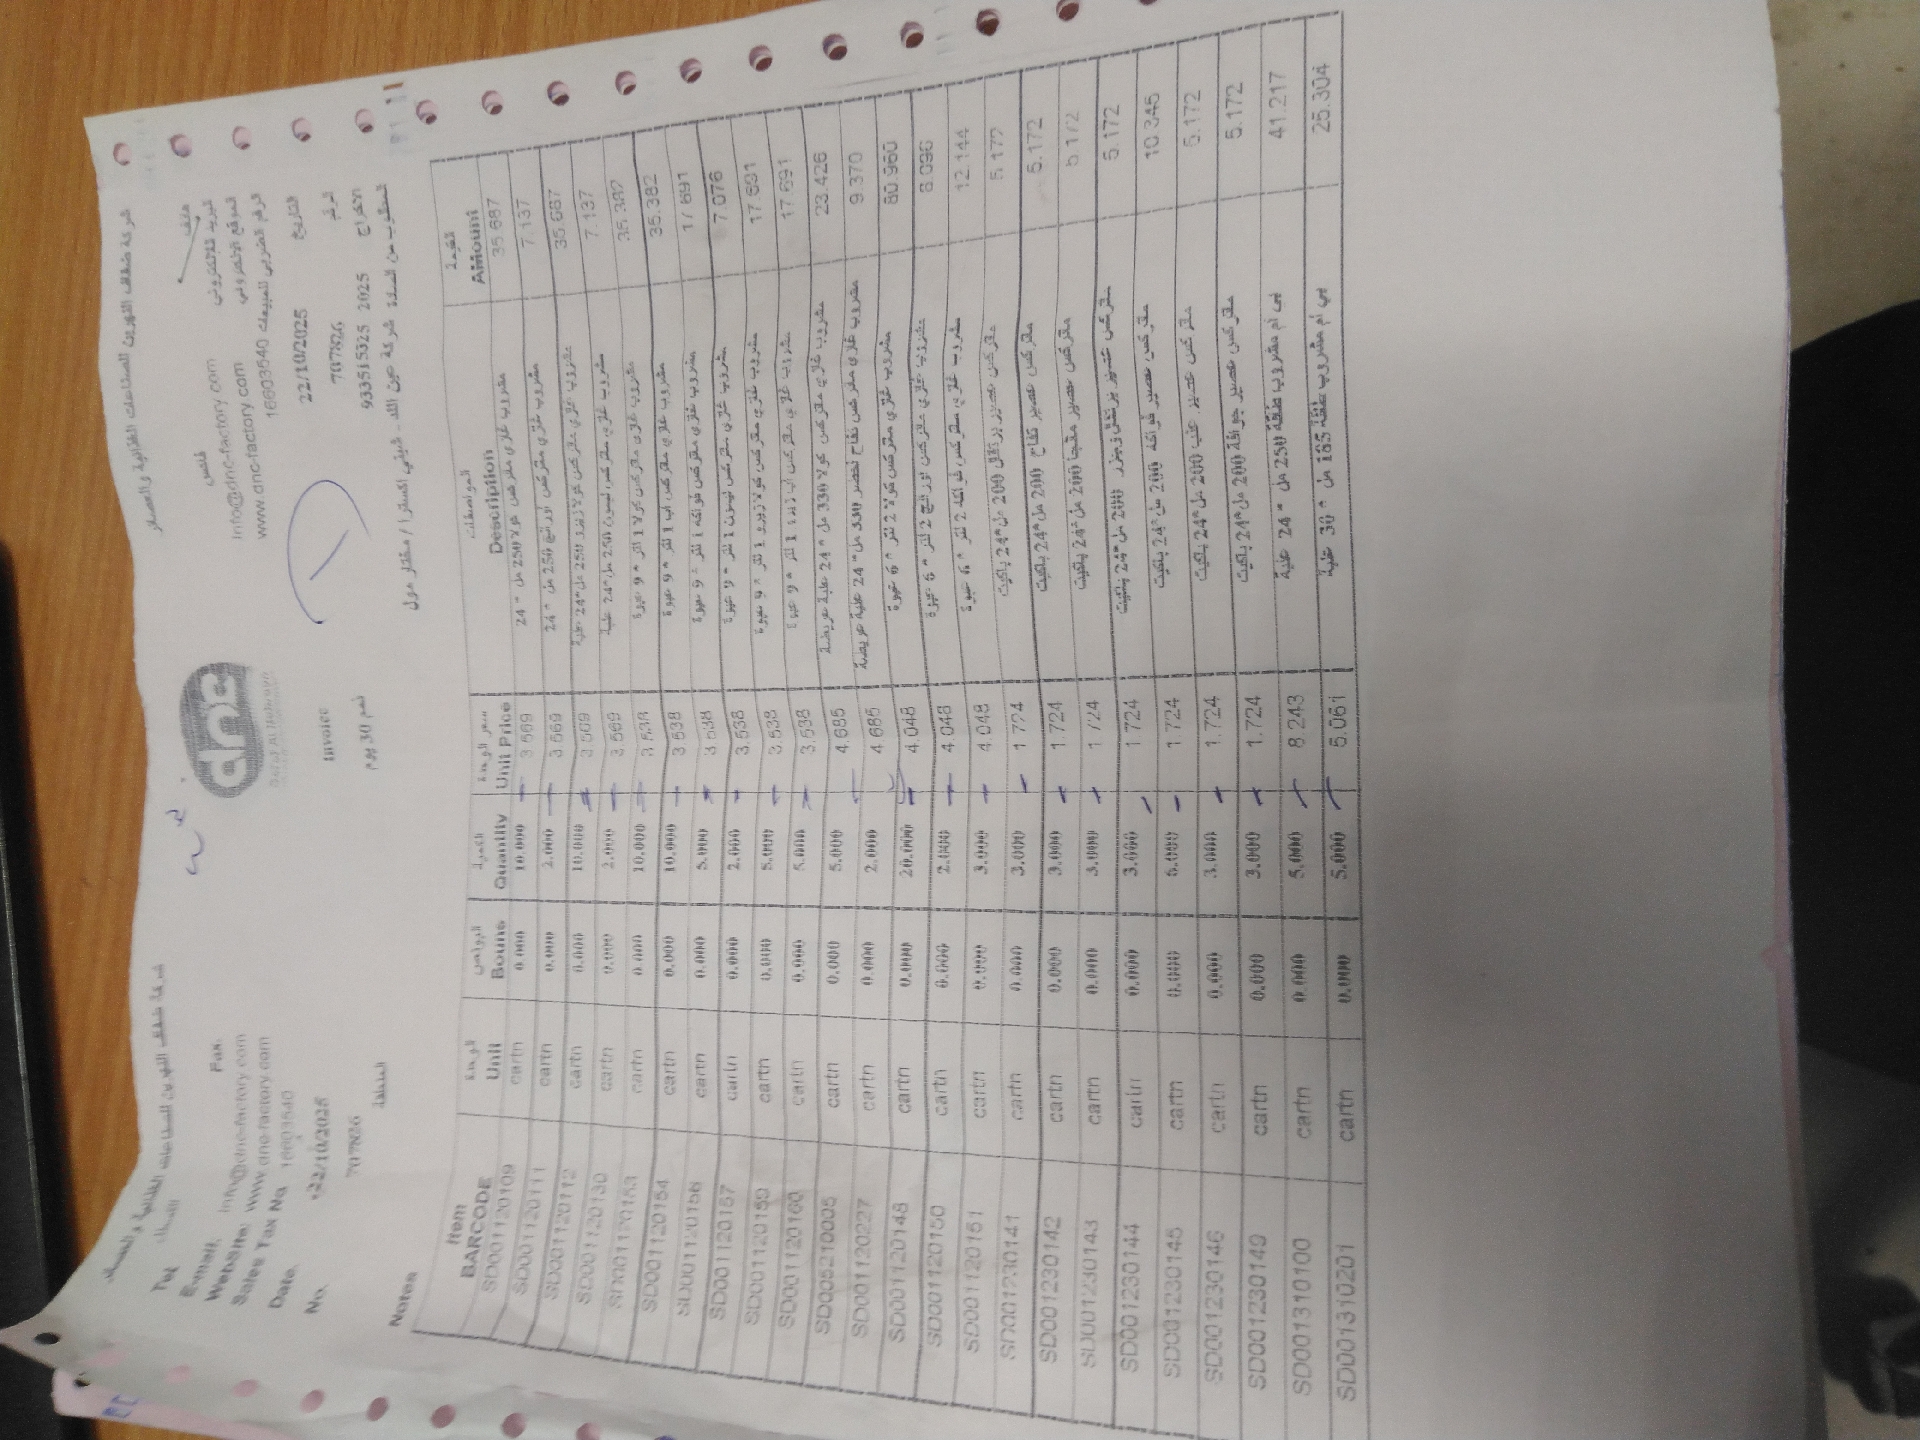 شركة ضفاف النهرين للصناعات الغذائية والعصائر
Tel
Fax. فاكس
E-mail. info@dnc-factory.com info@dnc-factory.com البريد الالكتروني
WebSite: www.dnc-factory.com www.dnc-factory.com الموقع الالكتروني
Sales Tax No 16603540 16603540 الرقم الضريبي للمبيعات
Date. 22/10/2025 22/10/2025 التاريخ
dnc
Invoice
No. 707826 707826 الرقم
ذمم 30 يوم
933515325 2025
Notes
المطلوب من السادة شركة عين الله
Item BARCODE الوحدة Unit البونص Bouns الكمية Quantity سعر الوحدة Unit Price المواصفات Description القيمة Amount
SD001120109 cartn 0.000 10.000 3.569 مشروب غازي مفركس كولا 250 مل * 24 35.687
SD001120111 cartn 0.000 2.000 3.569 مشروب غازي مفركس اورانج 250 مل * 24 7.137
SD001120112 cartn 0.000 10.000 3.569 مشروب غازي مفركس كولا زيرو 250 مل* 24 علبة 35.687
SD001120130 cartn 0.000 2.000 3.569 مشروب غازي مفركس ليمون 250 مل* 24 علبة 7.137
SD001120153 cartn 0.000 10.000 3.538 مشروب غازي مفركس كولا 1 لتر * 9 عبوة 35.382
SD001120154 cartn 0.000 10.000 3.538 مشروب غازي مفركس اب 1 لتر * 9 عبوة 35.382
SD001120156 cartn 0.000 5.000 3.538 مشروب غازي مفركس فواكه 1 لتر * 9 عبوة 17.691
SD001120157 cartn 0.000 2.000 3.538 مشروب غازي مفركس ليمون 1 لتر * 9 عبوة 7.076
SD001120159 cartn 0.000 5.000 3.538 مشروب غازي مفركس كولا زيرو 1 لتر * 9 عبوة 17.691
SD001120160 cartn 0.000 5.000 3.538 مشروب غازي مفركس اب زيرو 1 لتر * 9 عبوة 17.691
SD005210005 cartn 0.000 5.000 4.685 مشروب غازي مفركس كولا 330 مل * 24 علبة عريضة 23.426
SD001120227 cartn 0.000 2.000 4.685 مشروب غازي مفركس تفاح اخضر 330 مل* 24 علبة عريضة 9.370
SD001120148 cartn 0.000 20.000 4.048 مشروب غازي مفركس كولا 2 لتر * 6 عبوة 80.960
SD001120150 cartn 0.000 2.000 4.048 مشروب غازي مفركس اورانج 2 لتر * 6 عبوة 8.096
SD001120151 cartn 0.000 3.000 4.048 مشروب غازي مفركس فواكه 2 لتر * 6 عبوة 12.144
SD001230141 cartn 0.000 3.000 1.724 مفركس عصير برتقال 200 مل*24 باكيت 5.172
SD001230142 cartn 0.000 3.000 1.724 مفركس عصير تفاح 200 مل*24 باكيت 5.172
SD001230143 cartn 0.000 3.000 1.724 مفركس عصير مانجا 200 مل*24 باكيت 5.172
SD001230144 cartn 0.000 3.000 1.724 مفركس عصير برتقال وجزر 200 مل*24 باكيت 5.172
SD001230145 cartn 0.000 6.000 1.724 مفركس عصير فواكه 200 مل*24 باكيت 10.345
SD001230146 cartn 0.000 3.000 1.724 مفركس عصير عنب 200 مل*24 باكيت 5.172
SD001230149 cartn 0.000 3.000 1.724 مفركس عصير جوافة 200 مل*24 باكيت 5.172
SD001310100 cartn 0.000 5.000 8.243 بي ام مشروب طاقة 250 مل * 24 علبة 41.217
SD001310201 cartn 0.000 5.000 5.061 بي ام مشروب طاقة 185 مل * 30 علبة 25.304